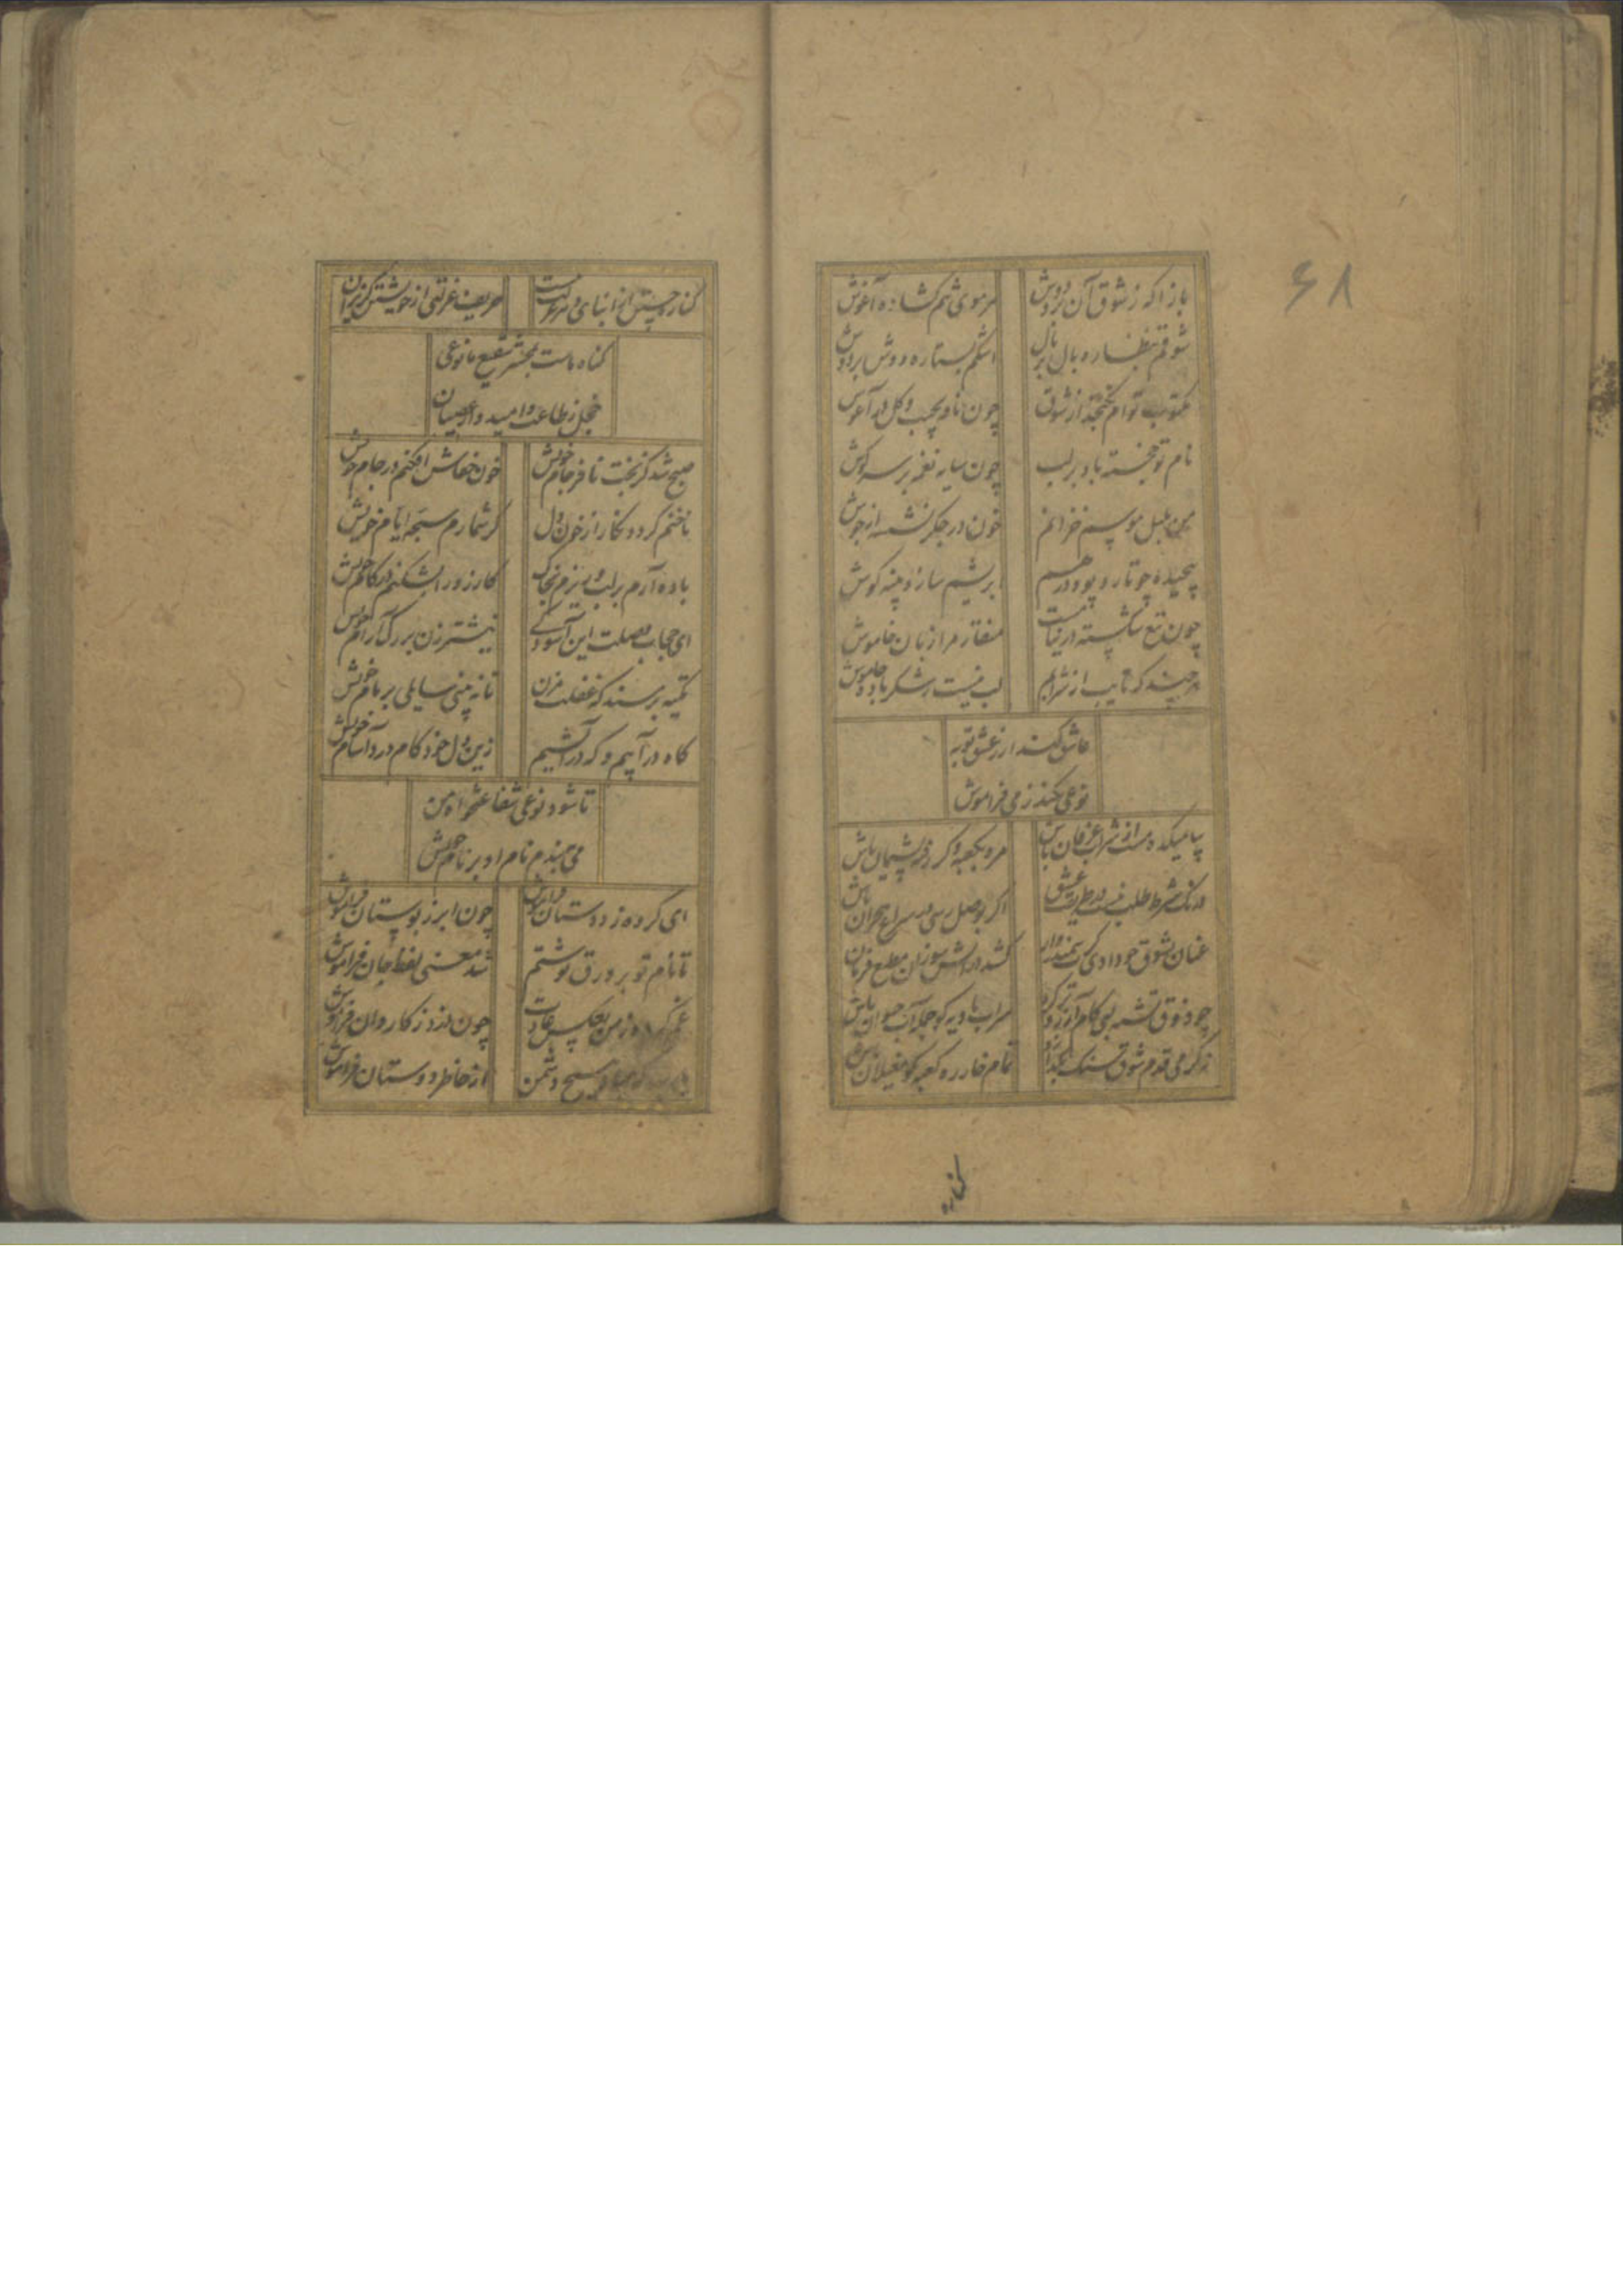 ۶۸
بازا که ز شوق آن بر و دوش
هر موی تنم کشاده آغوش
شوقم بنظاره بال بر بال
اشکم بستاره دوش بر دوش
مکتوب توام نکنجد از شوق
چون نافه بجیب و کل در آغوش
نام تو خجسته باد بر لب
چون سایه نغمه بر سر کوش
من بلبل موسم خزانم
خون در جکر نشسته از جوش
پیچیده چو تار و پود در هم
بریشم ساز و پنبه کوش
چون تیغ شکسته در نیامست
منقار مرا زبان خاموش
هر چند که تایب از شرابم
لب نیست
عاشق کند ار ز عشق توبه
نوعی نکند ز می فراموش
بیا بمیکده مست از شراب عرفان باش
مرو بکعبه و کر رفته پشیمان باش
درنک شرط طلب نیست در طریقت عشق
اکر بوصل رسی در سراغ هجران باش
عنان بشوق چو دادی
کشد در آتش سوزان مطیع فرمان باش
چو ذوق تشنه لبی کام آرزو تر کرد
سراب بادیه کو جمله آب حیوان باش
ز کرمی قدم شوق سنک
تمام خار ره کعبه کو مغیلان باش
کناره
کناره جستن از ابنای
حریف عزلتی از خویشتن کریزان باش
کناه ماست بمحشر شفیع ما نوعی
خجل ز طاعت و امیدوار عصیان باش
صبح شد کز بخت نافرجام خویش
خون خفاش افکنم در جام خویش
ناخنم کردد نکار از خون دل
کر شمارم سبحه ایام خویش
باده آرم بر لب و ریزم بخاک
کارزو را بشکنم در کام خویش
ای حجاب وصلت این آسودکی
نیشتر زن بر رک آرام خویش
تکیه بر مسند که غفلت مزن
تا نه بینی سایلی بر بام خویش
کاه در آبیم و که در آتشیم
زین دل خودکام درد آشام خویش
تا شود نوعی شفاعتخواه من
می نهم نام او بر نام خویش
ای کرده ز دوستان فراموش
چون ابر ز بوستان فراموش
تا نام تو بر ورق نوشتم
شد معنی لفظ جان فراموش
من بعکس عادت
چون دزد ز کاروان فراموش
هیچ دشمن
از خاطر دوستان فراموش